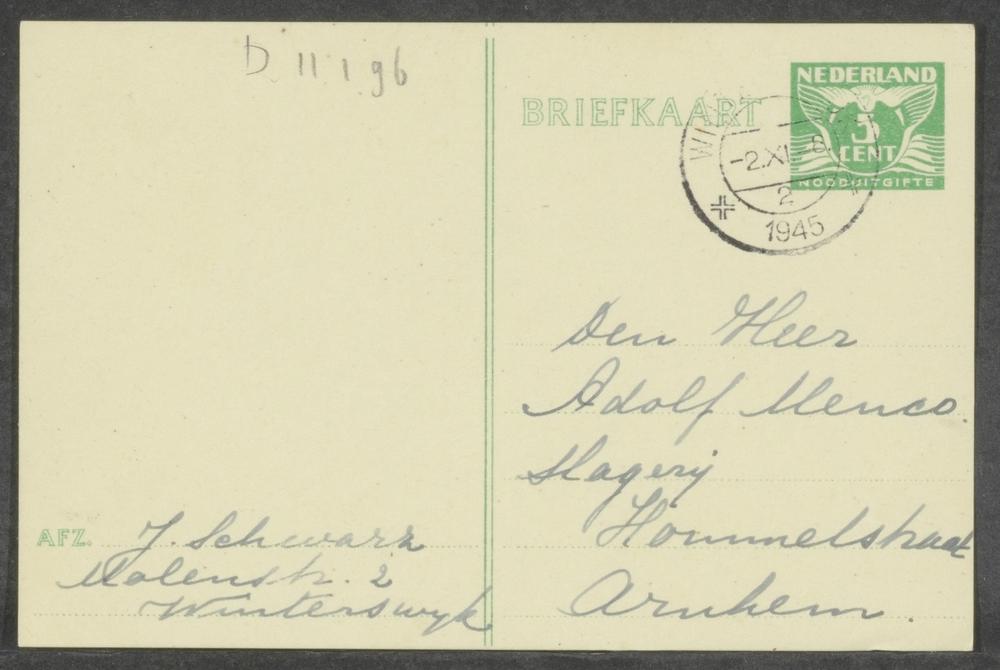 D 11 1 96
BRIEFKAART
NEDERLAND
5
CENT
NOODUITGIFTE
-2.XI.-8.
2
1945
Den Heer
Adolf Menco
Slagerij
Hommelstraat
Arnhem
AFZ. J. Schwarz
Molenstr. 2
Winterswyk